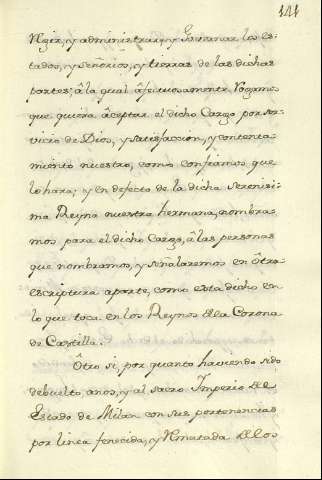 141
Regir, y administrar, y Governar los es-
tados, y Señorios, y tierras de las dichas
partes; â la qual afectuosamente Rogamos
que quiera âceptar el dicho Cargo por ser-
vicio de Dios, y satisfaccion, y contenta-
miento nuestro, como confiamos que
lo hara; y en defecto de la dicha Serenisi-
ma Reyna nuestra hermana, nombra-
mos para el dicho Cargo, â las personas
que nombramos, y señalaremos en ôtra
escriptura aparte, como esta dicho en
lo que toca en los Reynos de la Corona
de Castilla.
Ôtro si, por quanto haviendo sido
debuelto, a nos, y al sacro Imperio el
Estado de Milan con sus pertenencias
por linea fenecida, y Rematada de los